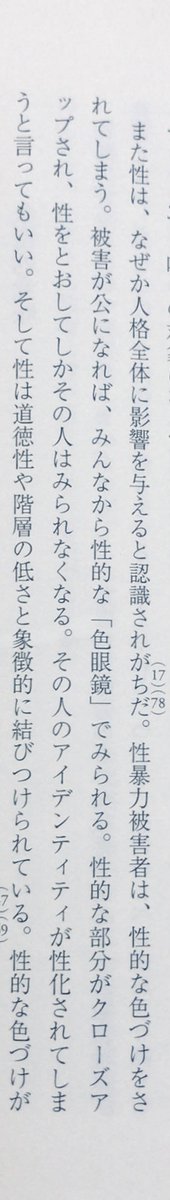 また性は、なぜか人格全体に影響を与えると認識されがちだ。性暴力被害者は、性的な色づけをさ
(17)(78)
れてしまう。被害が公になれば、みんなから性的な「色眼鏡」でみられる。性的な部分がクローズア
ップされ、性をとおしてしかその人はみられなくなる。その人のアイデンティティが性化されてしま
うと言ってもいい。そして性は道徳性や階層の低さと象徴的に結びつけられている。性的な色づけが